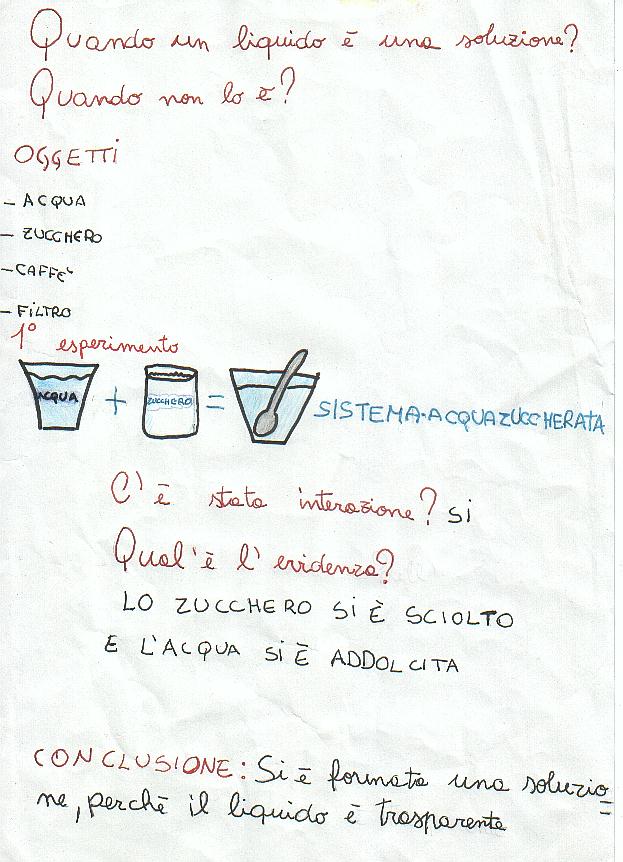 Quando un liquido è una soluzione?
Quando non lo è?
OGGETTI
- ACQUA
- ZUCCHERO
- CAFFE'
- FILTRO
1° esperimento
ACQUA + ZUCCHERO = SISTEMA-ACQUAZUCCHERATA
C'è stata interazione? Si
Qual'è l'evidenza?
LO ZUCCHERO SI È SCIOLTO
E L'ACQUA SI È ADDOLCITA
CONCLUSIONE: Si è formata una soluzio=
ne, perchè il liquido è trasparente